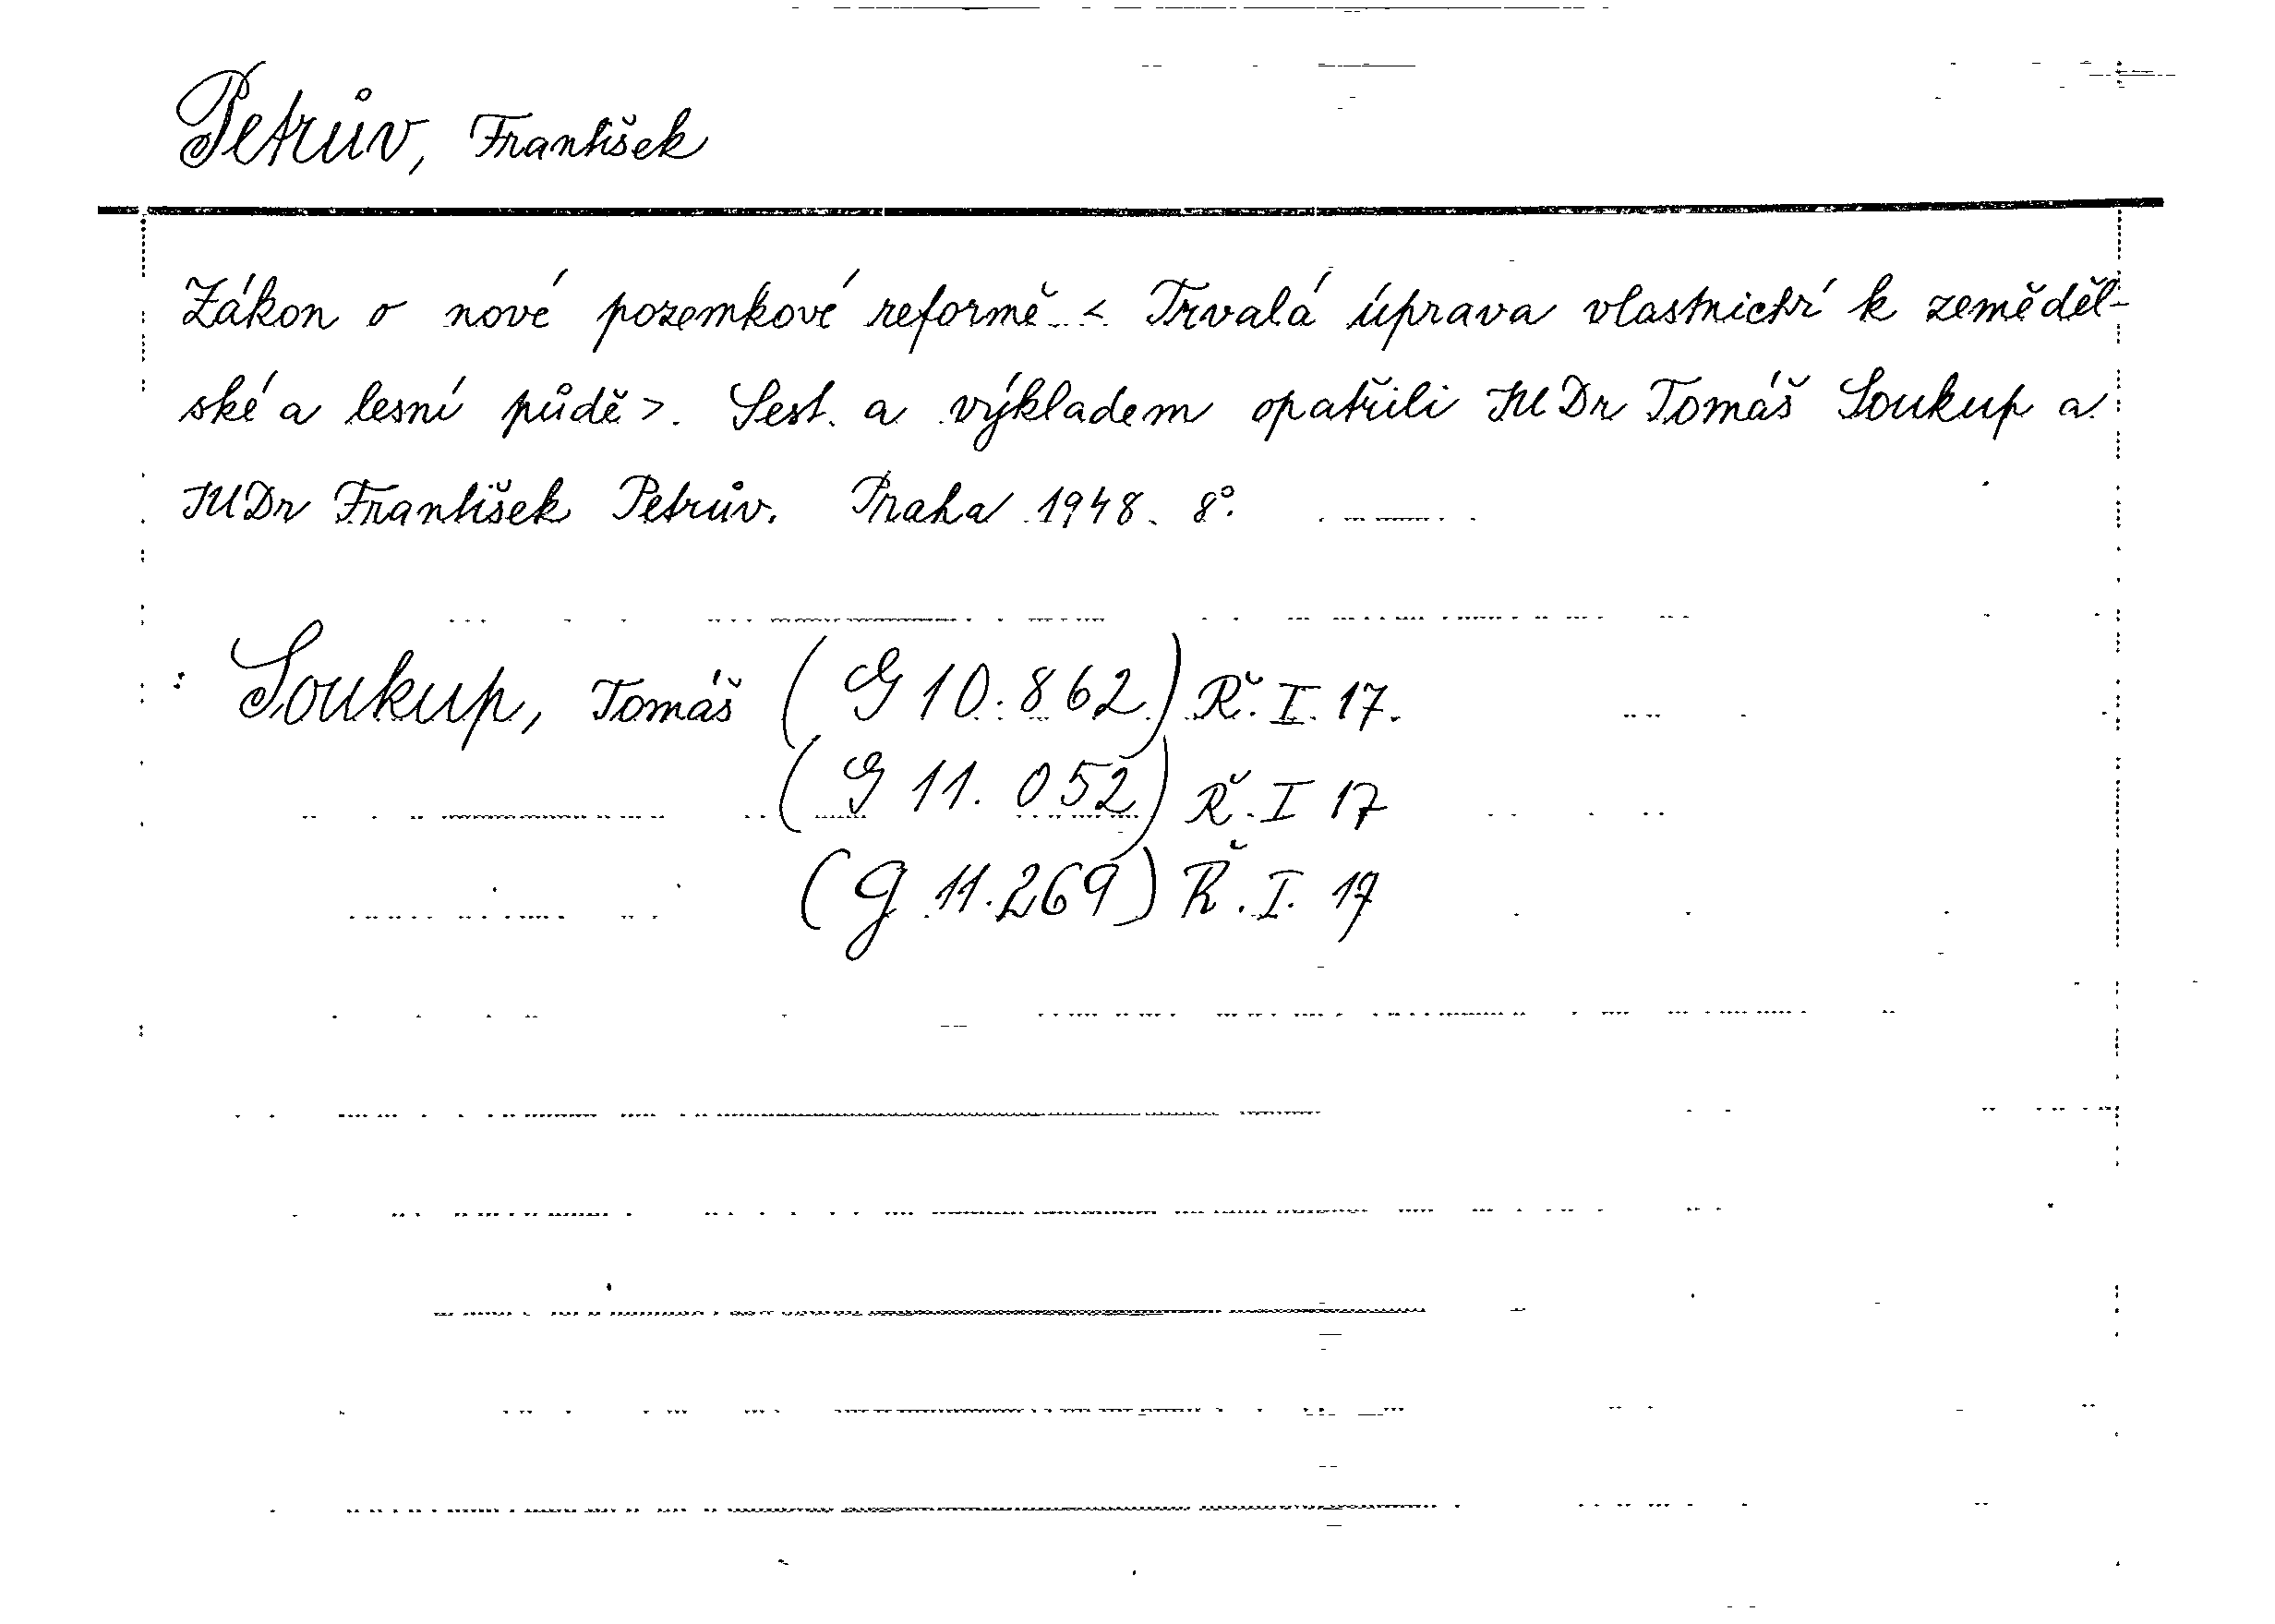 Petrův, František
Zákon o nové pozemkové reformě < Trvalá úprava vlastnictví k zeměděl-
ské a lesní půdě >. Sest. a výkladem opatřili JUDr Tomáš Soukup a
JUDr František Petrův. Praha 1948. 8°.
: Soukup, Tomáš (G 10.862) Ř. I. 17.
(G 11. 052) Ř. I 17
(G 11.269) Ř. I. 17